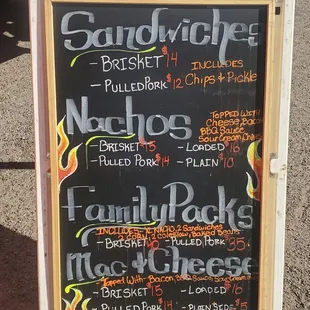 Sandwiches
- BRISKET $14 INCLUDES
- PULLED PORK $12 Chips & Pickle
Nachos TOPPED WITH
Cheese, Bacon
BBQ Sauce
Sour Cream, Chives
BRISKET $15 - LOADED $16
- PULLED PORK $14 - PLAIN $10
Family Packs
INCLUDES 2 Sandwiches
2 Coleslaw, Baked Beans
- BRISKET - PULLED PORK 35
Mac & Cheese
Topped With Bacon, BBQ Sauce, Sour Cream
- BRISKET $15 - LOADED $16
- PULLED PORK $14 - PLAIN SIDE $5